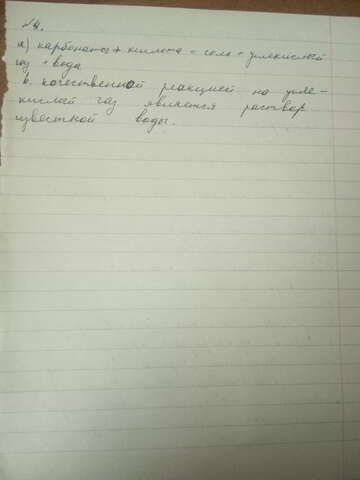 №4.
а) карбонаты + кислота = соль + углекислый
газ + вода
в. качественной реакцией на угле-
кислый газ является раствор
известной воды.